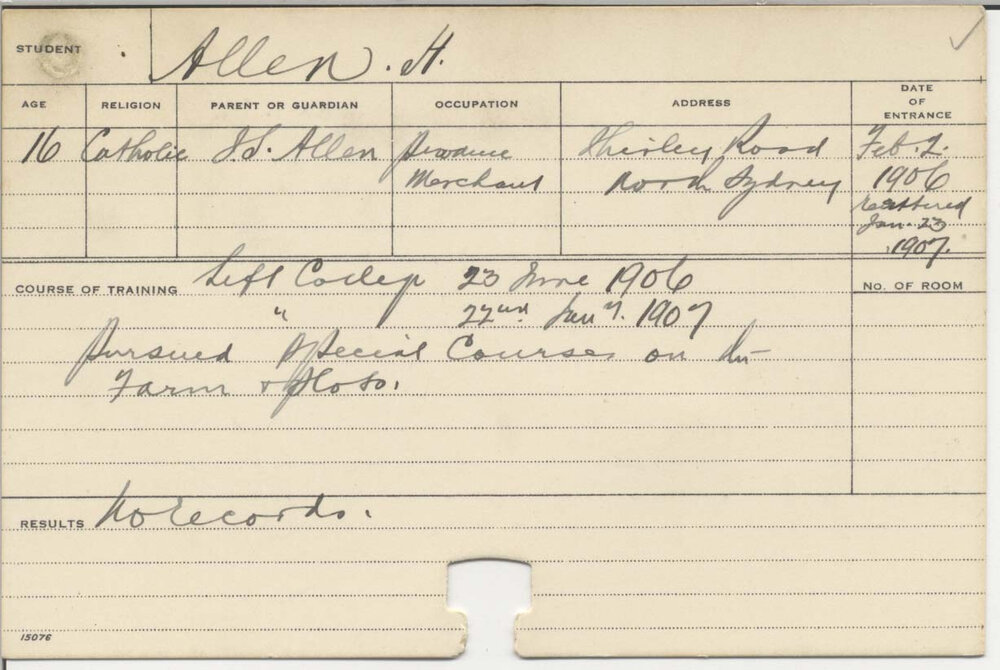 STUDENT Allen. H.
AGE RELIGION PARENT OR GUARDIAN OCCUPATION ADDRESS DATE OF ENTRANCE
16 Catholic J.S. Allen Produce Shirley Road Feb. 2.
Merchant North Sydney 1906
Jan. 23
1907.
COURSE OF TRAINING Left College 23 June 1906 No. OF ROOM
" 22nd Jany. 1907
Pursued Special Courses on the
Farm & plots.
RESULTS No records.
15076